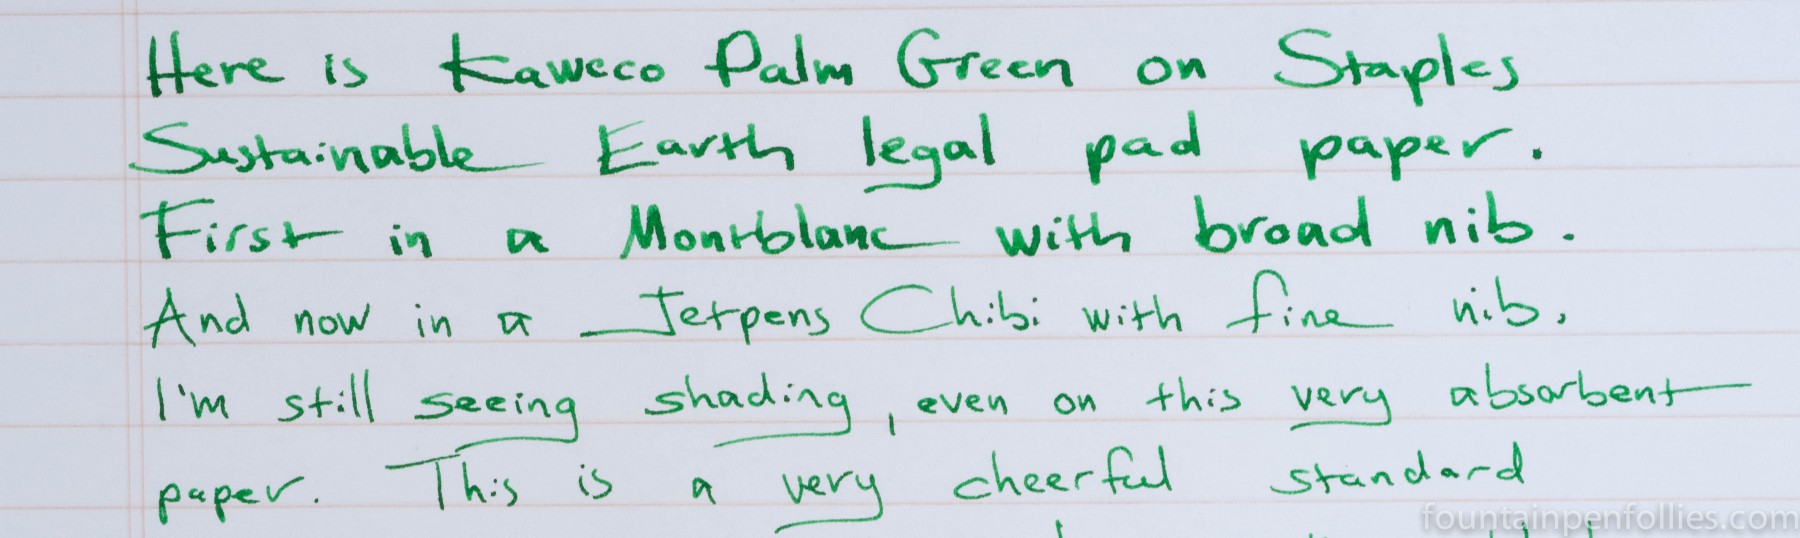 Here is Kaweco Palm Green on Staples
Sustainable Earth legal pad paper.
First in a Montblanc with broad nib.
And now in a Jetpens Chibi with fine nib.
I'm still seeing shading, even on this very absorbent
paper. This is a very cheerful standard
fountainpenfollies.com